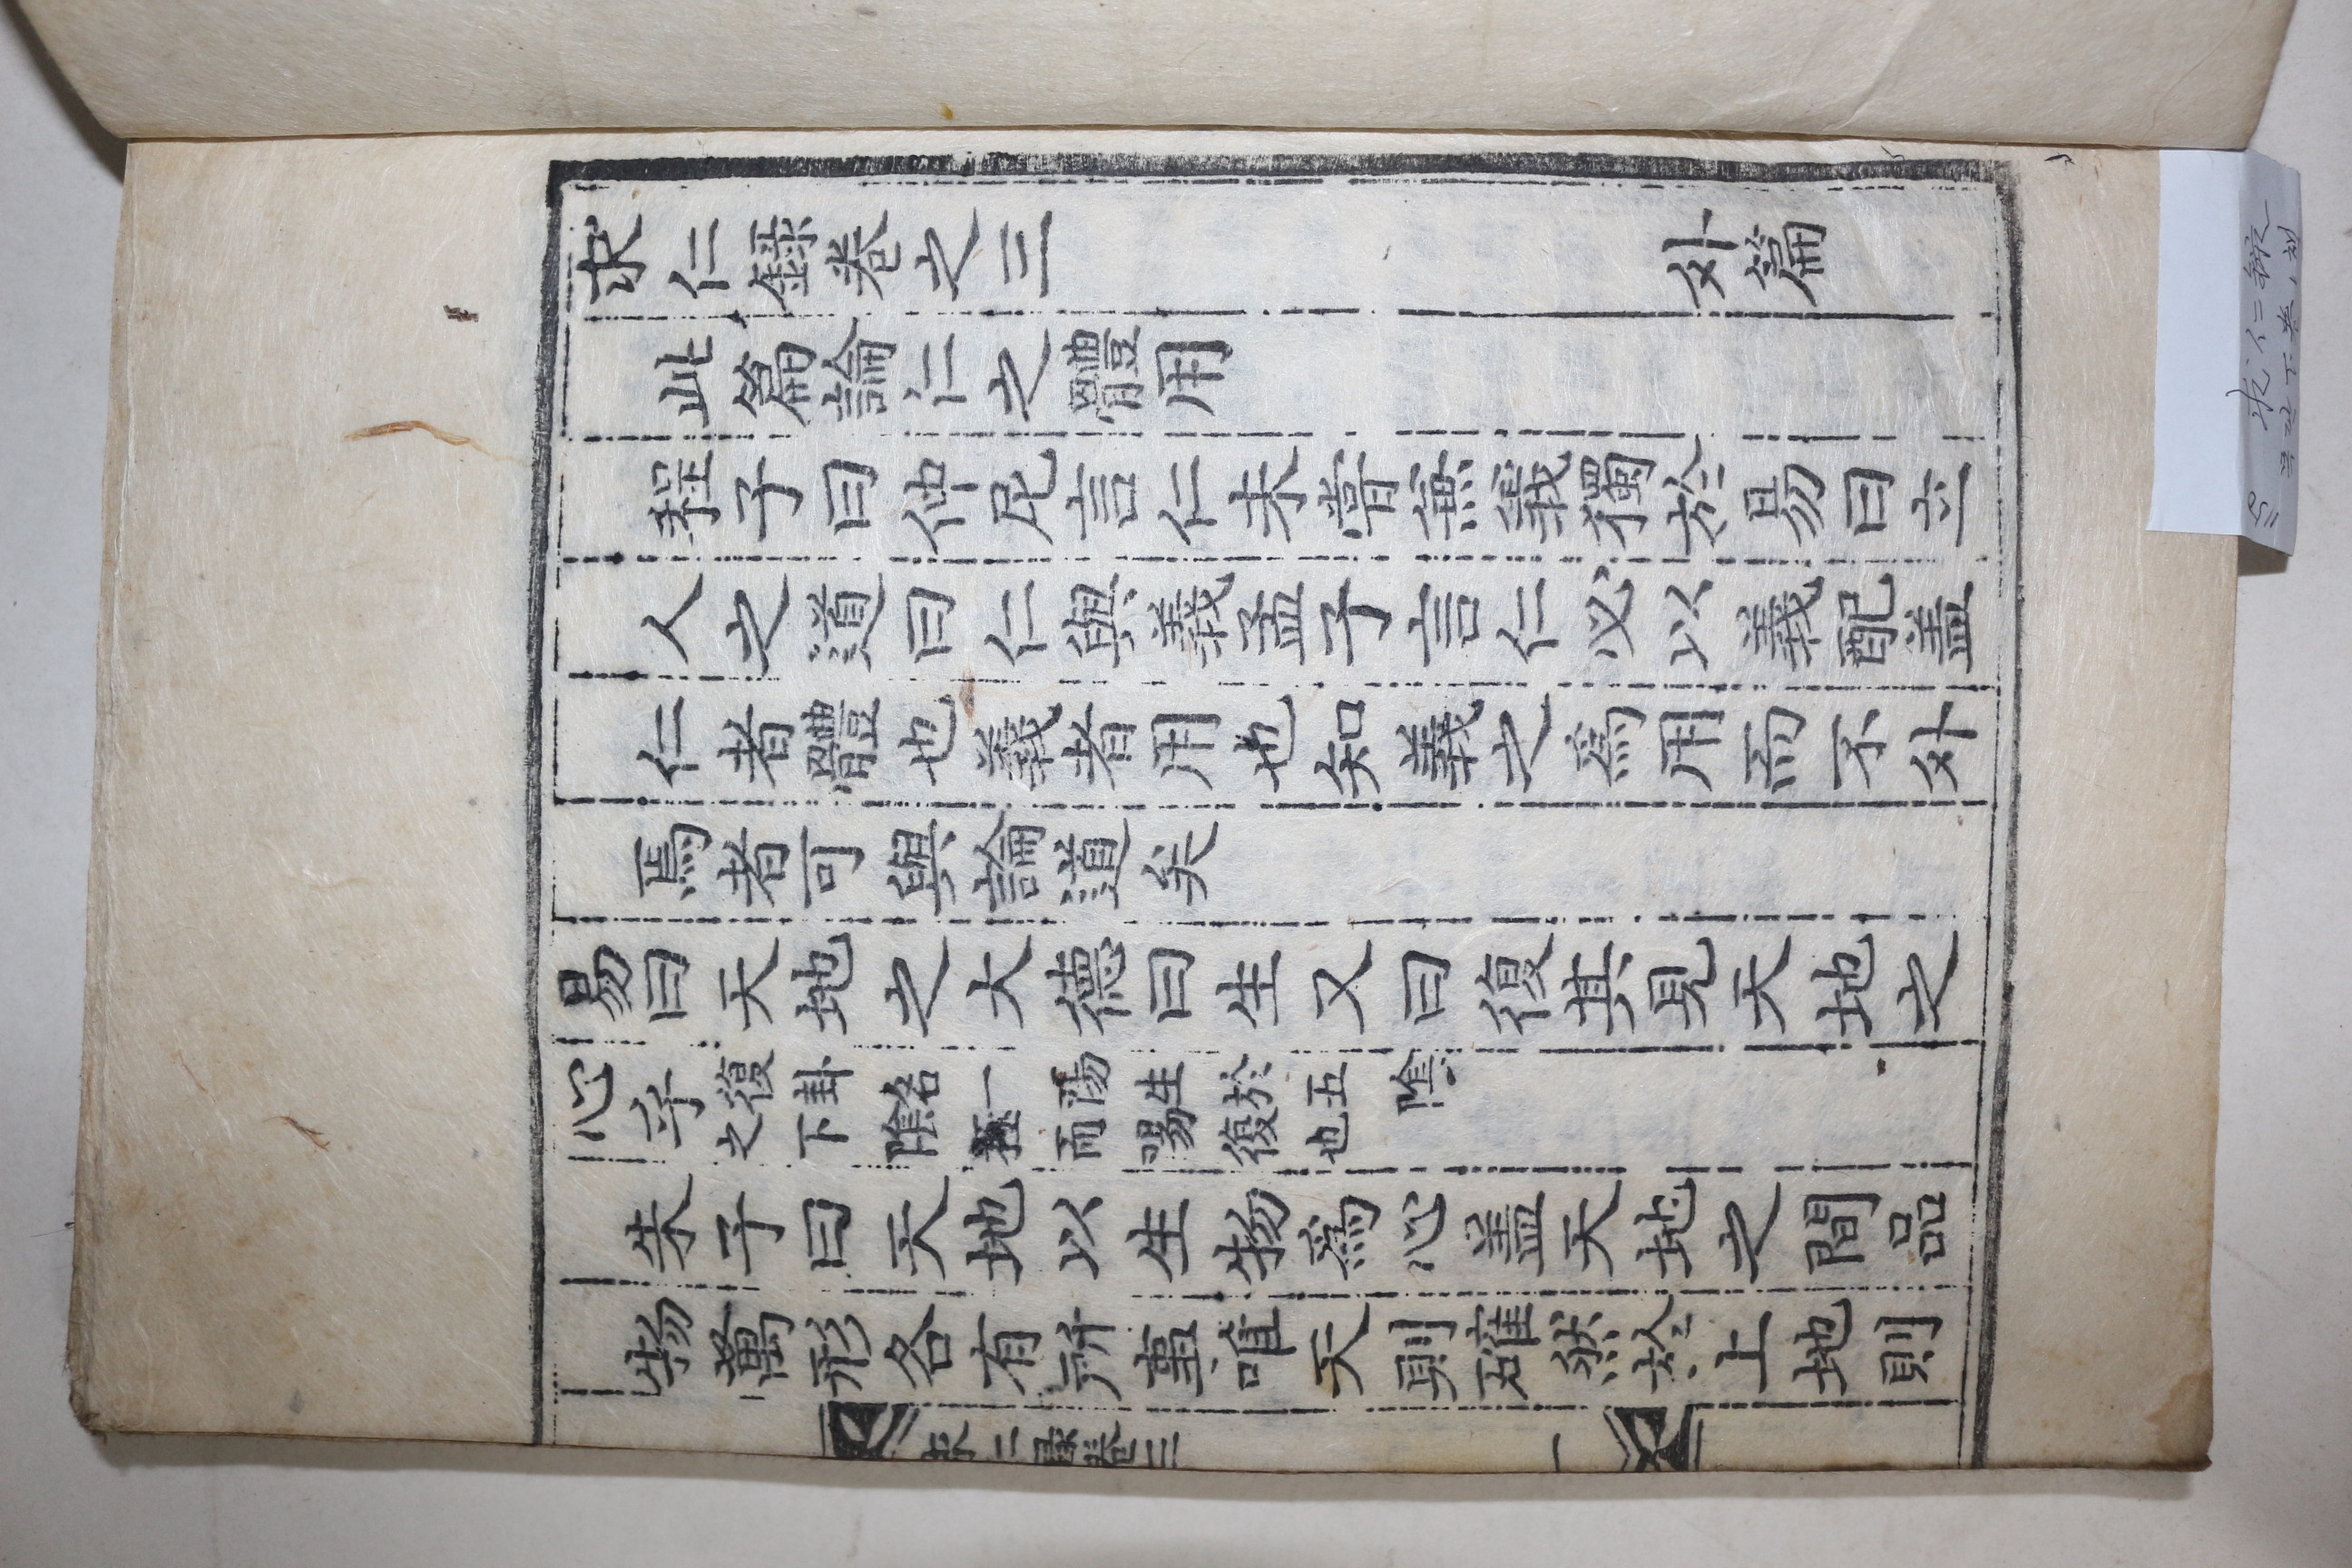 求仁錄卷之三 外篇
此篇論仁之體用
程子曰仲尼言仁未嘗無義獨於易曰立
人之道曰仁與義孟子言仁必以義配盖
仁者體也義者用也知義之爲用而不外
焉者可與論道矣
易曰天地之大德曰生又曰復其見天地之
心乎復卦名一陽生於五陰
之下陰極而陽復也
朱子曰天地以生物爲心盖天地之間品
物萬形各有所事唯天則確然於上地則
求仁錄卷三 一
求仁錄